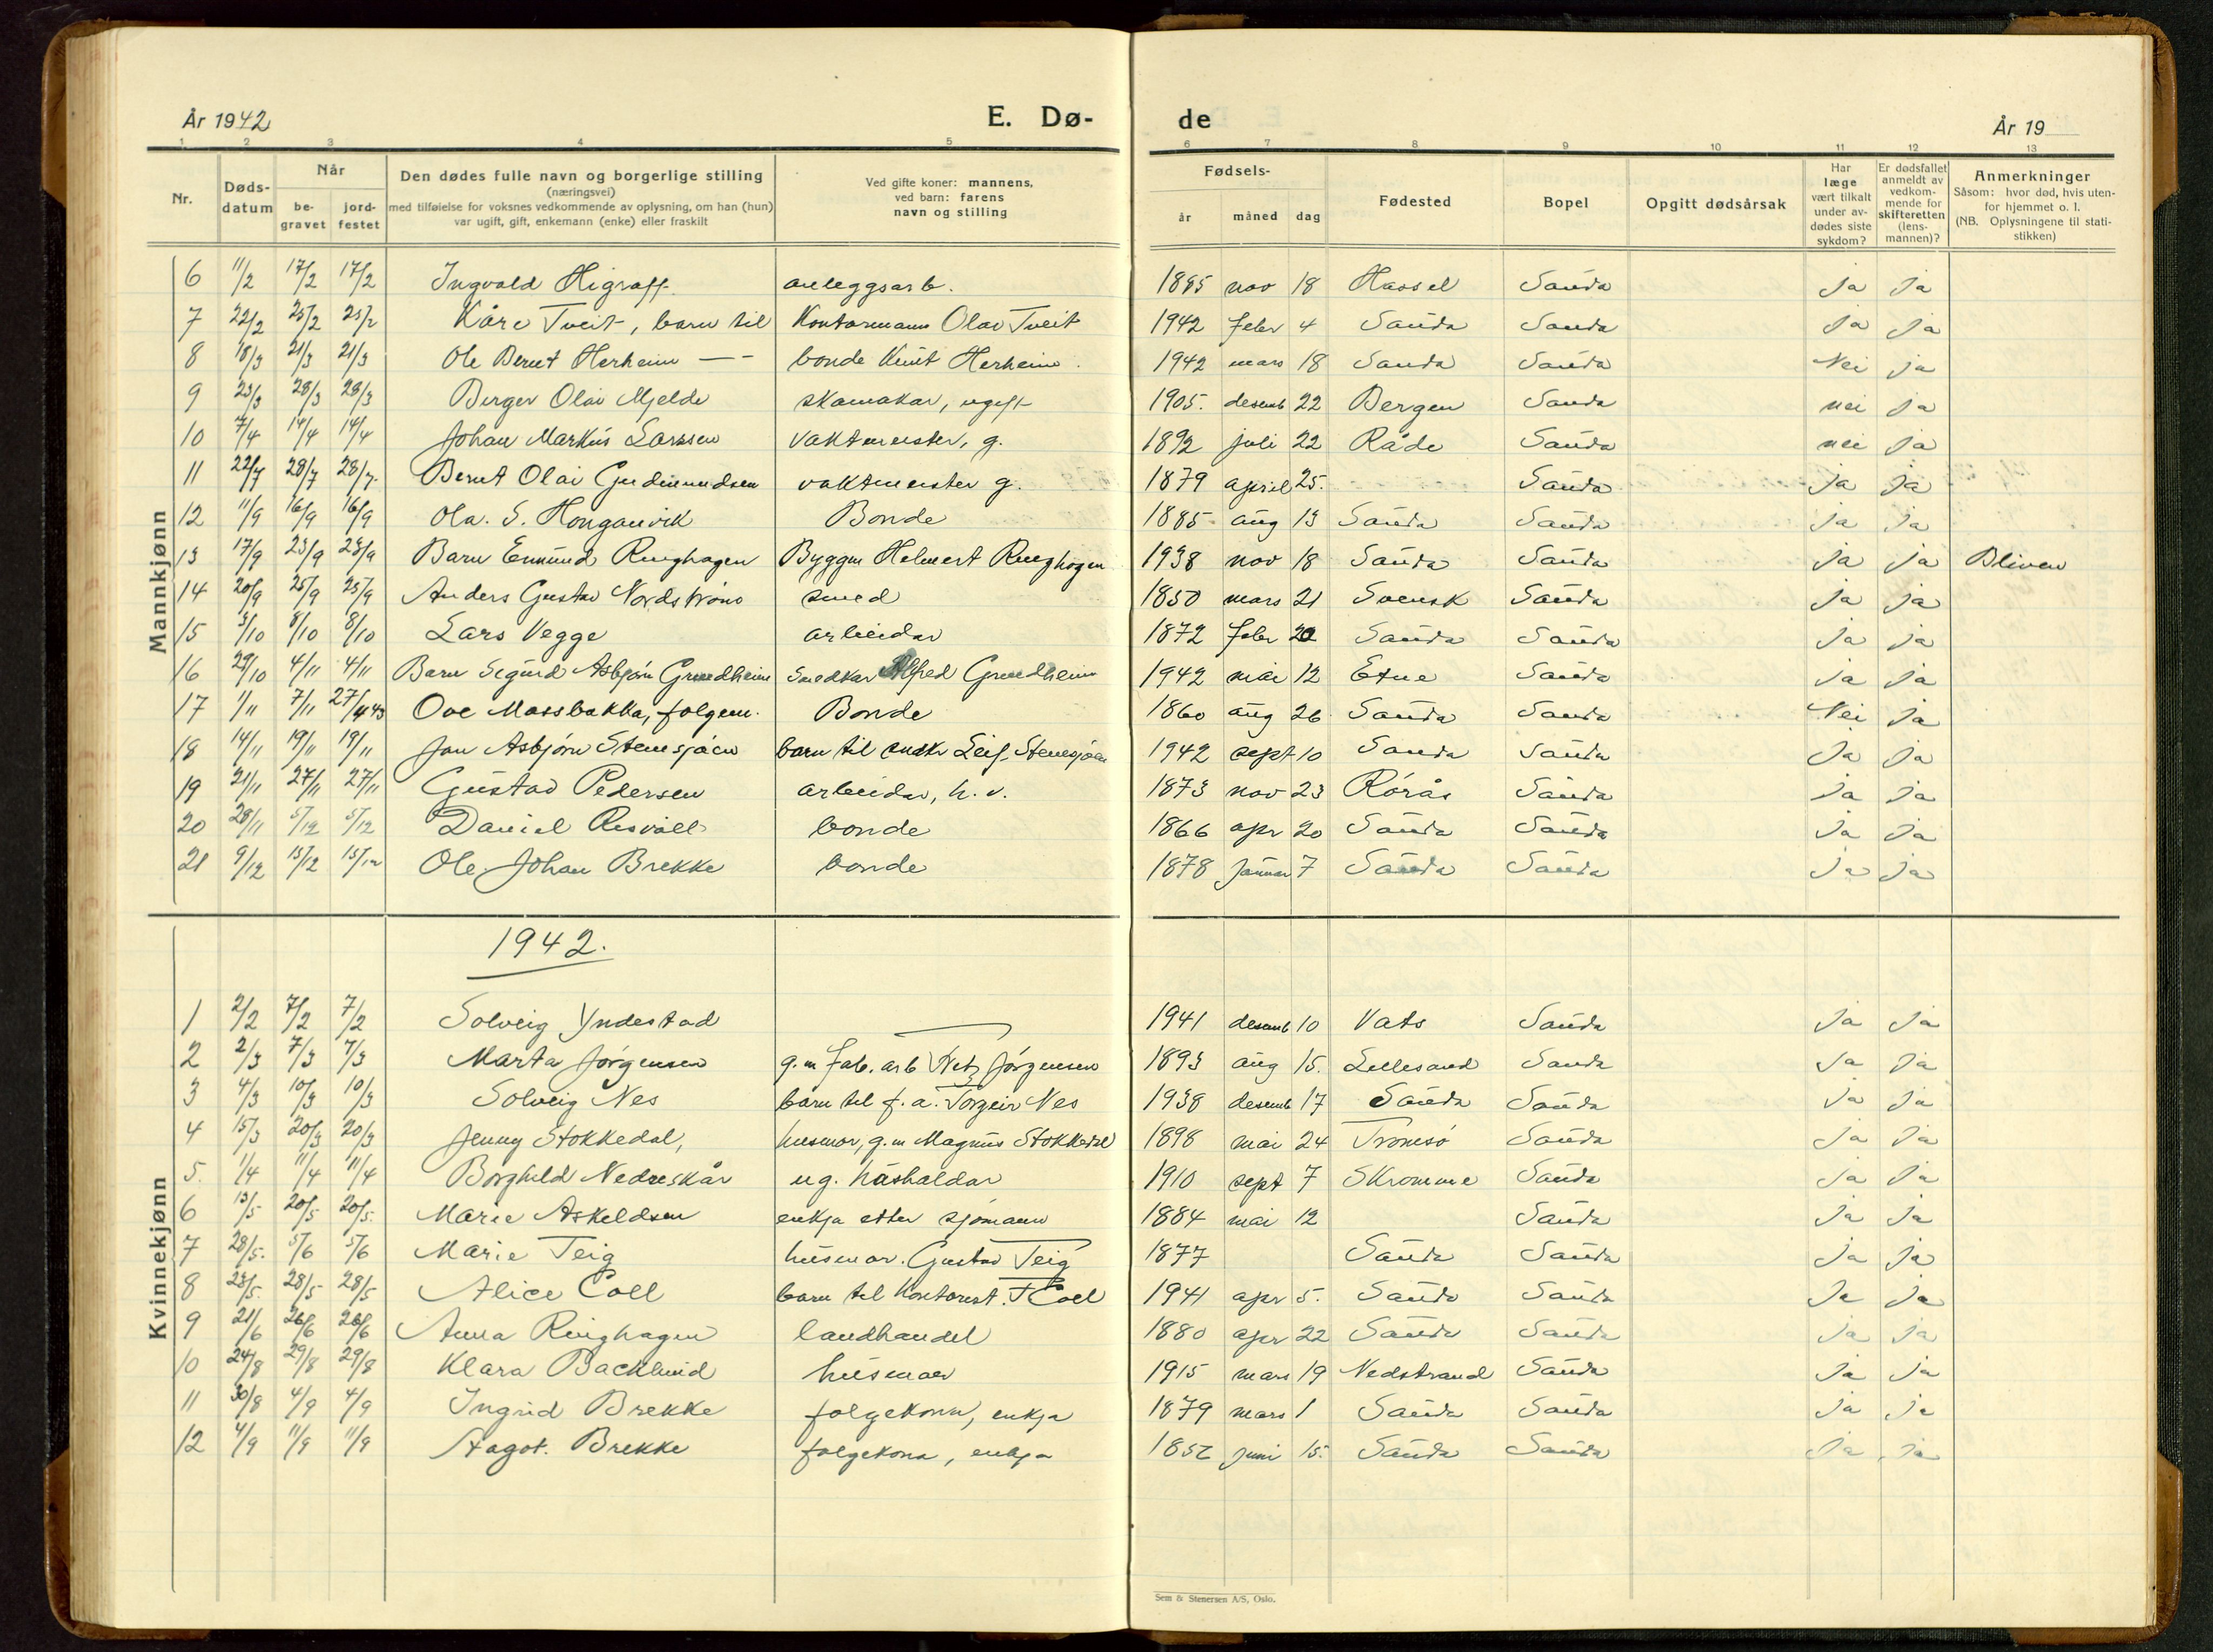 År 1942 E. Dø- de År 19
1 2 3 4 5 6 7 8 9 10 11 12 13
Nr. Døds-datum Når be-gravet jord-festet Den dødes fulle navn og borgerlige stilling (næringsvei) med tilføielse for voksnes vedkommende av oplysning, om han (hun) var ugift, gift, enkemann (enke) eller fraskilt Ved gifte koner: mannens, ved barn: farens navn og stilling Fødsels- år måned dag Fødested Bopel Opgitt dødsårsak Har læge vært tilkalt under av-dødes siste sykdom? Er dødsfallet anmeldt av vedkom-mende for skifteretten (lens-mannen)? Anmerkninger Såsom: hvor død, hvis uten-for hjemmet o. l. (NB. Oplysningene til stati-stikken)
Mannkjønn
6 11/2 17/2 17/2 Ingvald Higraff anleggsarb. 1895 nov 18 Hassel Sauda Ja Ja
7 22/2 25/2 25/2 Kåre Tveit, barn til Kontormann Olav Tveit 1942 febr 4 Sauda Sauda Ja Ja
8 18/3 21/3 21/3 Ole Bernt Herheim — - bonde Knut Herheim. 1942 mars 18 Sauda Sauda Nei Ja
9 23/3 28/3 28/3 Birger Olai Mjelde skomakar, ugift 1905. desemb 22 Bergen Sauda nei Ja
10 7/4 14/4 14/4 Johan Markus Larssen vaktmeister, g. 1892 juli 22 Råde Sauda nei Ja
11 22/7 28/7 28/7. Bernt Olai Gudmundsen vaktmeister g. 1879 april 25. Sauda Ja Ja
12 11/9 16/9 16/9 Ola. S. Honganvik Bonde 1885 aug 13 Sauda Sauda Ja Ja
13 17/9 23/9 23/9 Barn Emund Ringhagen Byggm Helmert Ringhagen 1938 nov 18 Sauda Sauda Ja Ja
14 20/9 25/9 25/9 Anders Gustav Nordstrøm smed 1850 mars 21 Svensk Sauda Ja Ja
15 3/10 8/10 8/10 Lars Vegge arbeidar 1872 febr 20 Sauda Sauda Ja Ja
16 29/10 4/11 4/11 Barn Sigurd Asbjørn Grindheim Snedkar Alfred Grindheim 1942 mai 12 Etne Sauda Ja Ja
17 1/11 7/11 27/4 43 Ove Mossbakka, folgem. Bonde 1860 aug 26 Sauda Sauda Nei Ja
18 14/11 19/11 19/11 Jan Asbjørn Stensjøen barn til snekr Leif Stensjøen 1942 sept 10 Sauda Sauda Ja Ja
19 21/11 27/11 27/11 Gustav Pedersen arbeidar, h. v. 1873 nov 23 Rørås Sauda Ja Ja
20 28/11 5/12 5/12 Daniel Risvoll bonde 1866 apr 20 Sauda Sauda Ja Ja
21 9/12 15/12 15/12 Ole Johan Brekke bonde 1878 januar 7 Sauda Sauda Ja Ja
1942.
Kvinnekjønn
1 2/2 7/2 7/2 Solveig Yndestad 1941 desemb 10 Vats Sauda Ja Ja
2 2/3 7/3 7/3 Marta Jørgensen g. m fab. arb Jørgensen 1893 aug 15. Lillesand Sauda Ja Ja
3 4/3 10/3 10/3 Solveig Nes barn til f. a. Torgeir Nes 1938 desemb 17 Sauda Sauda Ja Ja
4 15/3 20/3 20/3 Jenny Stokkedal, husmor, g. m Magnus Stokkedal 1898 mai 24 Tromsø Sauda Ja Ja
5. 1/4 11/4 11/4 Borghild Nedreskår ug. hushaldar 1910 sept 7 Skromme Sauda Ja Ja
6 13/5 20/5 20/5. Marie Askeldsen enkja etter sjømann 1884 mai 12 Sauda Ja Ja
7 28/5. 5/6 5/6 Marie Teig husmor. Gustav Teig 1877 Sauda Sauda Ja Ja
8 23/5. 28/5 28/5 Alice Coll barn til Kontorist. T Coll 1941 apr 5. Sauda Sauda Ja Ja
9 21/6 26/6 26/6 Anna Ringhagen landhandel 1880 apr 22 Sauda Sauda Ja Ja
10 24/8 29/8 29/8 Klara Backlund husmor 1915 mars 19 Nedstrand Sauda Ja Ja
11 30/8 4/9 4/9 Ingrid Brekke folgekona, enkja 1879 mars 1 Sauda Sauda Ja Ja
12 4/9 11/9 11/9 Aagot. Brekke folgekona, enkja juni 15. Sauda Sauda Ja Ja
Sem & Stenersen A/S, Oslo.